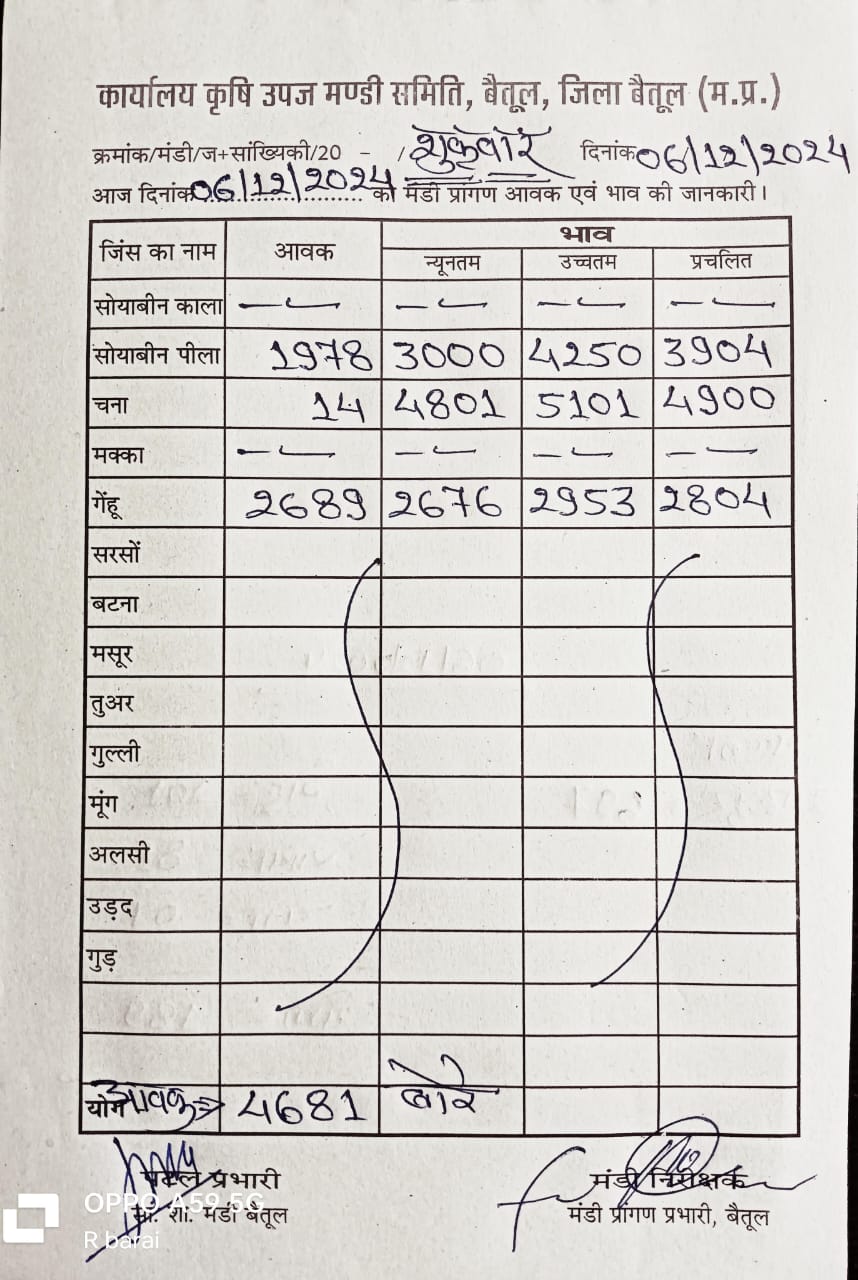 कार्यालय कृषि उपज मण्डी समिति, बैतूल, जिला बैतूल (म.प्र.)
क्रमांक/मंडी/ज+सांख्यिकी/20 - / शुक्रवार दिनांक 06/12/2024
आज दिनांक 06/12/2024 को मंडी प्रांगण आवक एवं भाव की जानकारी।
जिंस का नाम आवक भाव
न्यूनतम उच्चतम प्रचलित
सोयाबीन काला — — — — — — — —
सोयाबीन पीला 1978 3000 4250 3904
चना 14 4801 5101 4900
मक्का — — — — — — — —
गेंहू 2689 2676 2953 2804
सरसों
बटना
मसूर
तुअर
गुल्ली
मूंग
अलसी
उड़द
गुड़
योग आवक 4681 बोरे
प्रभारी मंडी निरीक्षक
शा. मंडी बैतूल मंडी प्रांगण प्रभारी, बैतूल
OPPO A59 5G
R barai